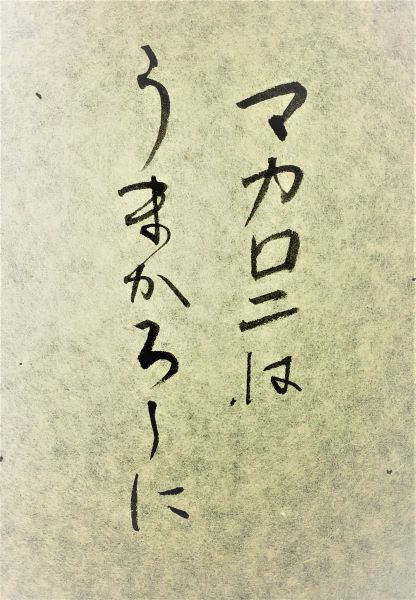 マカロニは
うまかろーに